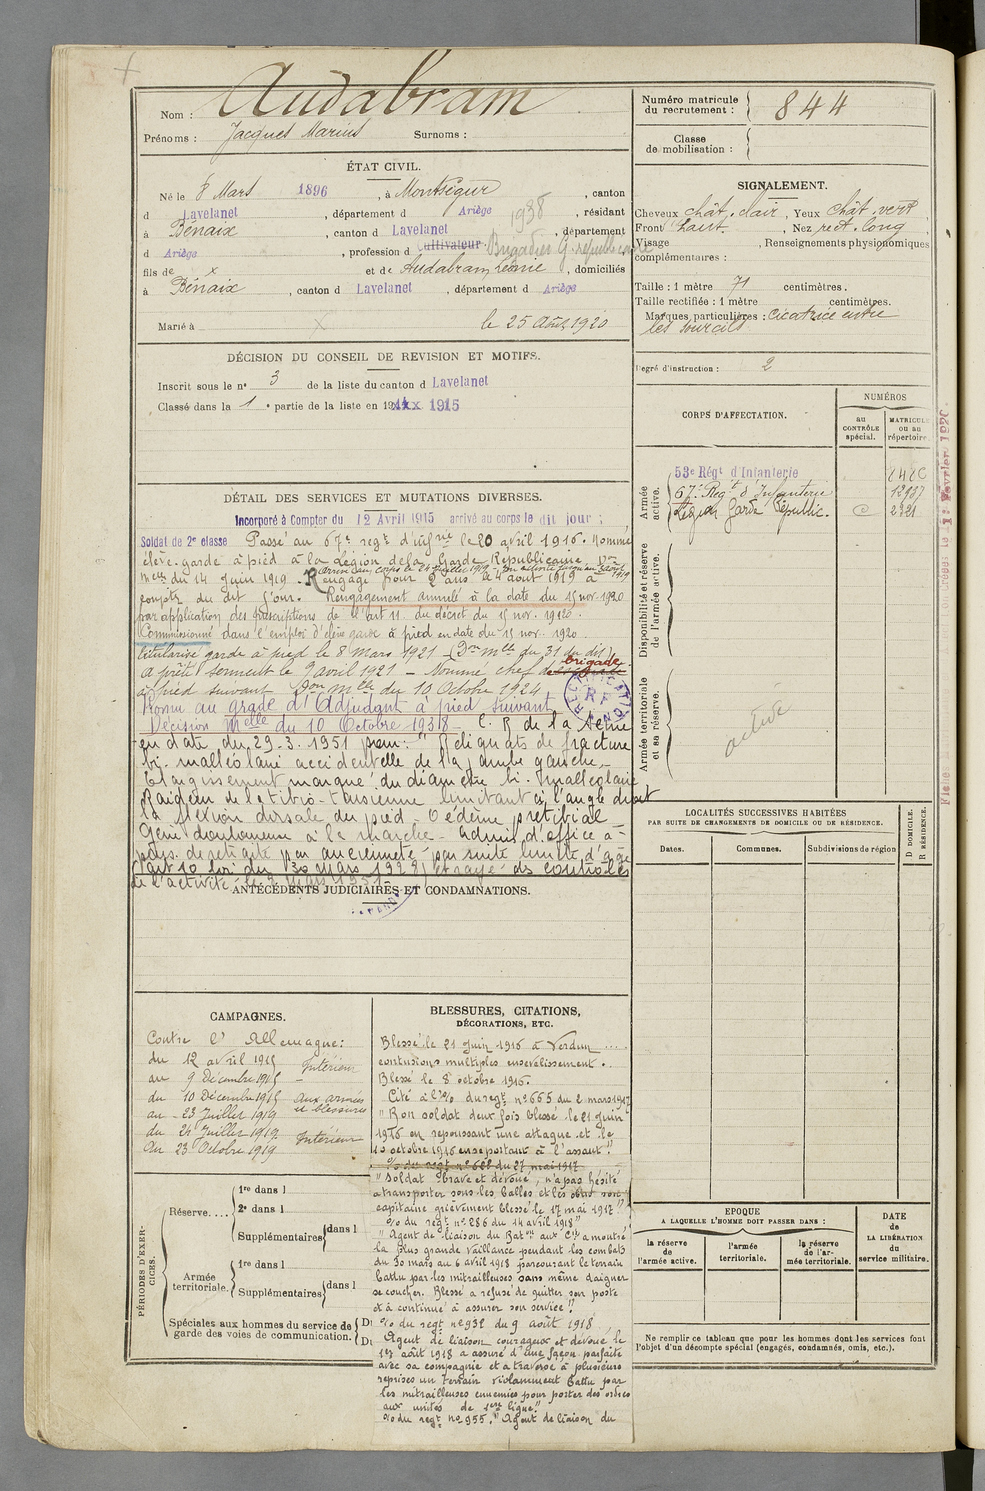 Nom : Audabram
Prénoms : Jacques Marius Surnoms :
ÉTAT CIVIL.
Né le 8 Mars 1896, à Montségur, canton
d Lavelanet, département d Ariège, résidant
1938
à Bénaix, canton d Lavelanet, département
d Ariège, profession d Cultivateur. Brigadier G. républicaine
fils de x et de Audabram Léonie, domiciliés
à Bénaix, canton d Lavelanet, département d Ariège
Marié à x le 25 Août 1920
DÉCISION DU CONSEIL DE REVISION ET MOTIFS.
Inscrit sous le n° 3 de la liste du canton d Lavelanet
Classé dans la 1e partie de la liste en 1914xx 1915
DÉTAIL DES SERVICES ET MUTATIONS DIVERSES.
Incorporé à Compter du 12 Avril 1915 arrivé au corps le dit jour ;
Soldat de 2e classe Passé au 67e regt d'infrie le 20 avril 1916. Nommé
élève-garde à pied à la Légion de la Garde Républicaine Don
Melle du 14 Juin 1919 - Arrivé au corps le 24 juillet 1919
Rengagé pour 2 ans le 4 août 1919 à
compter du dit jour. Rengagement annulé à la date du 15 nov. 1920
par application des prescriptions de l'art 11. du décret du 15 nov. 1920
Commissionné dans l'emploi d'élève garde à pied en date du 15 nov. 1920.
titularisé garde à pied le 8 mars 1921 (Don Melle du 31 du dit)
a prêté serment le 9 avril 1921 - Nommé chef de brigade
à pied suivant Don Melle du 10 Octobre 1924
Promu au grade d'Adjudant à pied suivant
Décision Melle du 10 Octobre 1938 - C. R de la Seine
en date du 29-3-1951 pour : "Reliquats de fracture
bi-malléolaire accidentelle de la jambe gauche -
Elargissement marqué du diamètre bi-malléolaire
Raideur de la tibio-tarsienne limitant à l'angle droit
la flexion dorsale du pied - Oedème prétibial
Gêne douloureuse à la marche - Admis d'office à
pens. de retraite par ancienneté par suite limite d'âge
(art 10 loi du 30 mars 1928) et rayé des contrôles
de l'activité le 8 Mars 1951.
ANTÉCÉDENTS JUDICIAIRES ET CONDAMNATIONS.
CAMPAGNES.
Contre l'Allemagne :
du 12 avril 1915
au 9 Décembre 1915 Intérieur
du 10 Décembre 1915
au 23 Juillet 1919 aux armées et blessures
du 24 Juillet 1919
au 23 Octobre 1919 Intérieur
PÉRIODES D'EXERCICES.
Réserve.... 1re dans l
2e dans l
Supplémentaires dans l
Armée territoriale. 1re dans l
Supplémentaires dans l
Spéciales aux hommes du service de garde des voies de communication. D
D
BLESSURES, CITATIONS,
DÉCORATIONS, ETC.
Blessé le 21 juin 1916 à Verdun ....
contusions multiples ensevelissement.
Blessé le 8 octobre 1916.
Cité à l'% du regt n° 665 du 2 mars 1917
"Bon soldat deux fois blessé le 21 juin
1916 en repoussant une attaque et le
10 octobre 1916 en se portant à l'assaut".
% du regt n° 688 du 27 mai 1917
"Soldat brave et dévoué, n'a pas hésité
à transporter sous les balles et les obus son
capitaine grièvement blessé le 17 mai 1917"
% du regt n° 286 du 14 avril 1918
"Agent de liaison du Baton aux Cies a montré
la plus grande vaillance pendant les combats
du 30 mars au 6 avril 1918 parcourant le terrain
battu par les mitrailleuses sans même daigner
se coucher. Blessé a refusé de quitter son poste
et a continué à assurer son service".
% du regt n° 932 du 9 août 1918
Agent de liaison courageux et dévoué le
1er août 1918 a assuré d'une façon parfaite
avec sa compagnie et a traversé à plusieurs
reprises un terrain violamment battu par
les mitrailleuses ennemies pour porter des ordres
aux unités de 1ere ligne".
% du regt n° 955. "Agent de liaison du
Numéro matricule
du recrutement : 844
Classe
de mobilisation :
SIGNALEMENT.
Cheveux chât. clair, Yeux chât. vert
Front haut., Nez rect. long,
Visage , Renseignements physionomiques
complémentaires :
Taille : 1 mètre 71 centimètres.
Taille rectifiée : 1 mètre centimètres.
Marques particulières : Cicatrice entre
les sourcils
Degré d'instruction : 2
CORPS D'AFFECTATION.
NUMÉROS
au CONTRÔLE spécial.
MATRICULE ou au répertoire.
Armée active.
53e Régt d'Infanterie
67e Regt d'Infanterie 12937
Légion Garde Républic. C 2321
Disponibilité et réserve de l'armée active.
Armée territoriale et sa réserve.
active
RECTIFICATION
R F
LOCALITÉS SUCCESSIVES HABITÉES
PAR SUITE DE CHANGEMENTS DE DOMICILE OU DE RÉSIDENCE.
Dates. Communes. Subdivisions de région
D DOMICILE.
R RÉSIDENCE.
EPOQUE
A LAQUELLE L'HOMME DOIT PASSER DANS :
la réserve de l'armée active.
l'armée territoriale.
la réserve de l'armée territoriale.
DATE de LA LIBÉRATION du service militaire.
Ne remplir ce tableau que pour les hommes dont les services font
l'objet d'un décompte spécial (engagés, condamnés, omis, etc.).